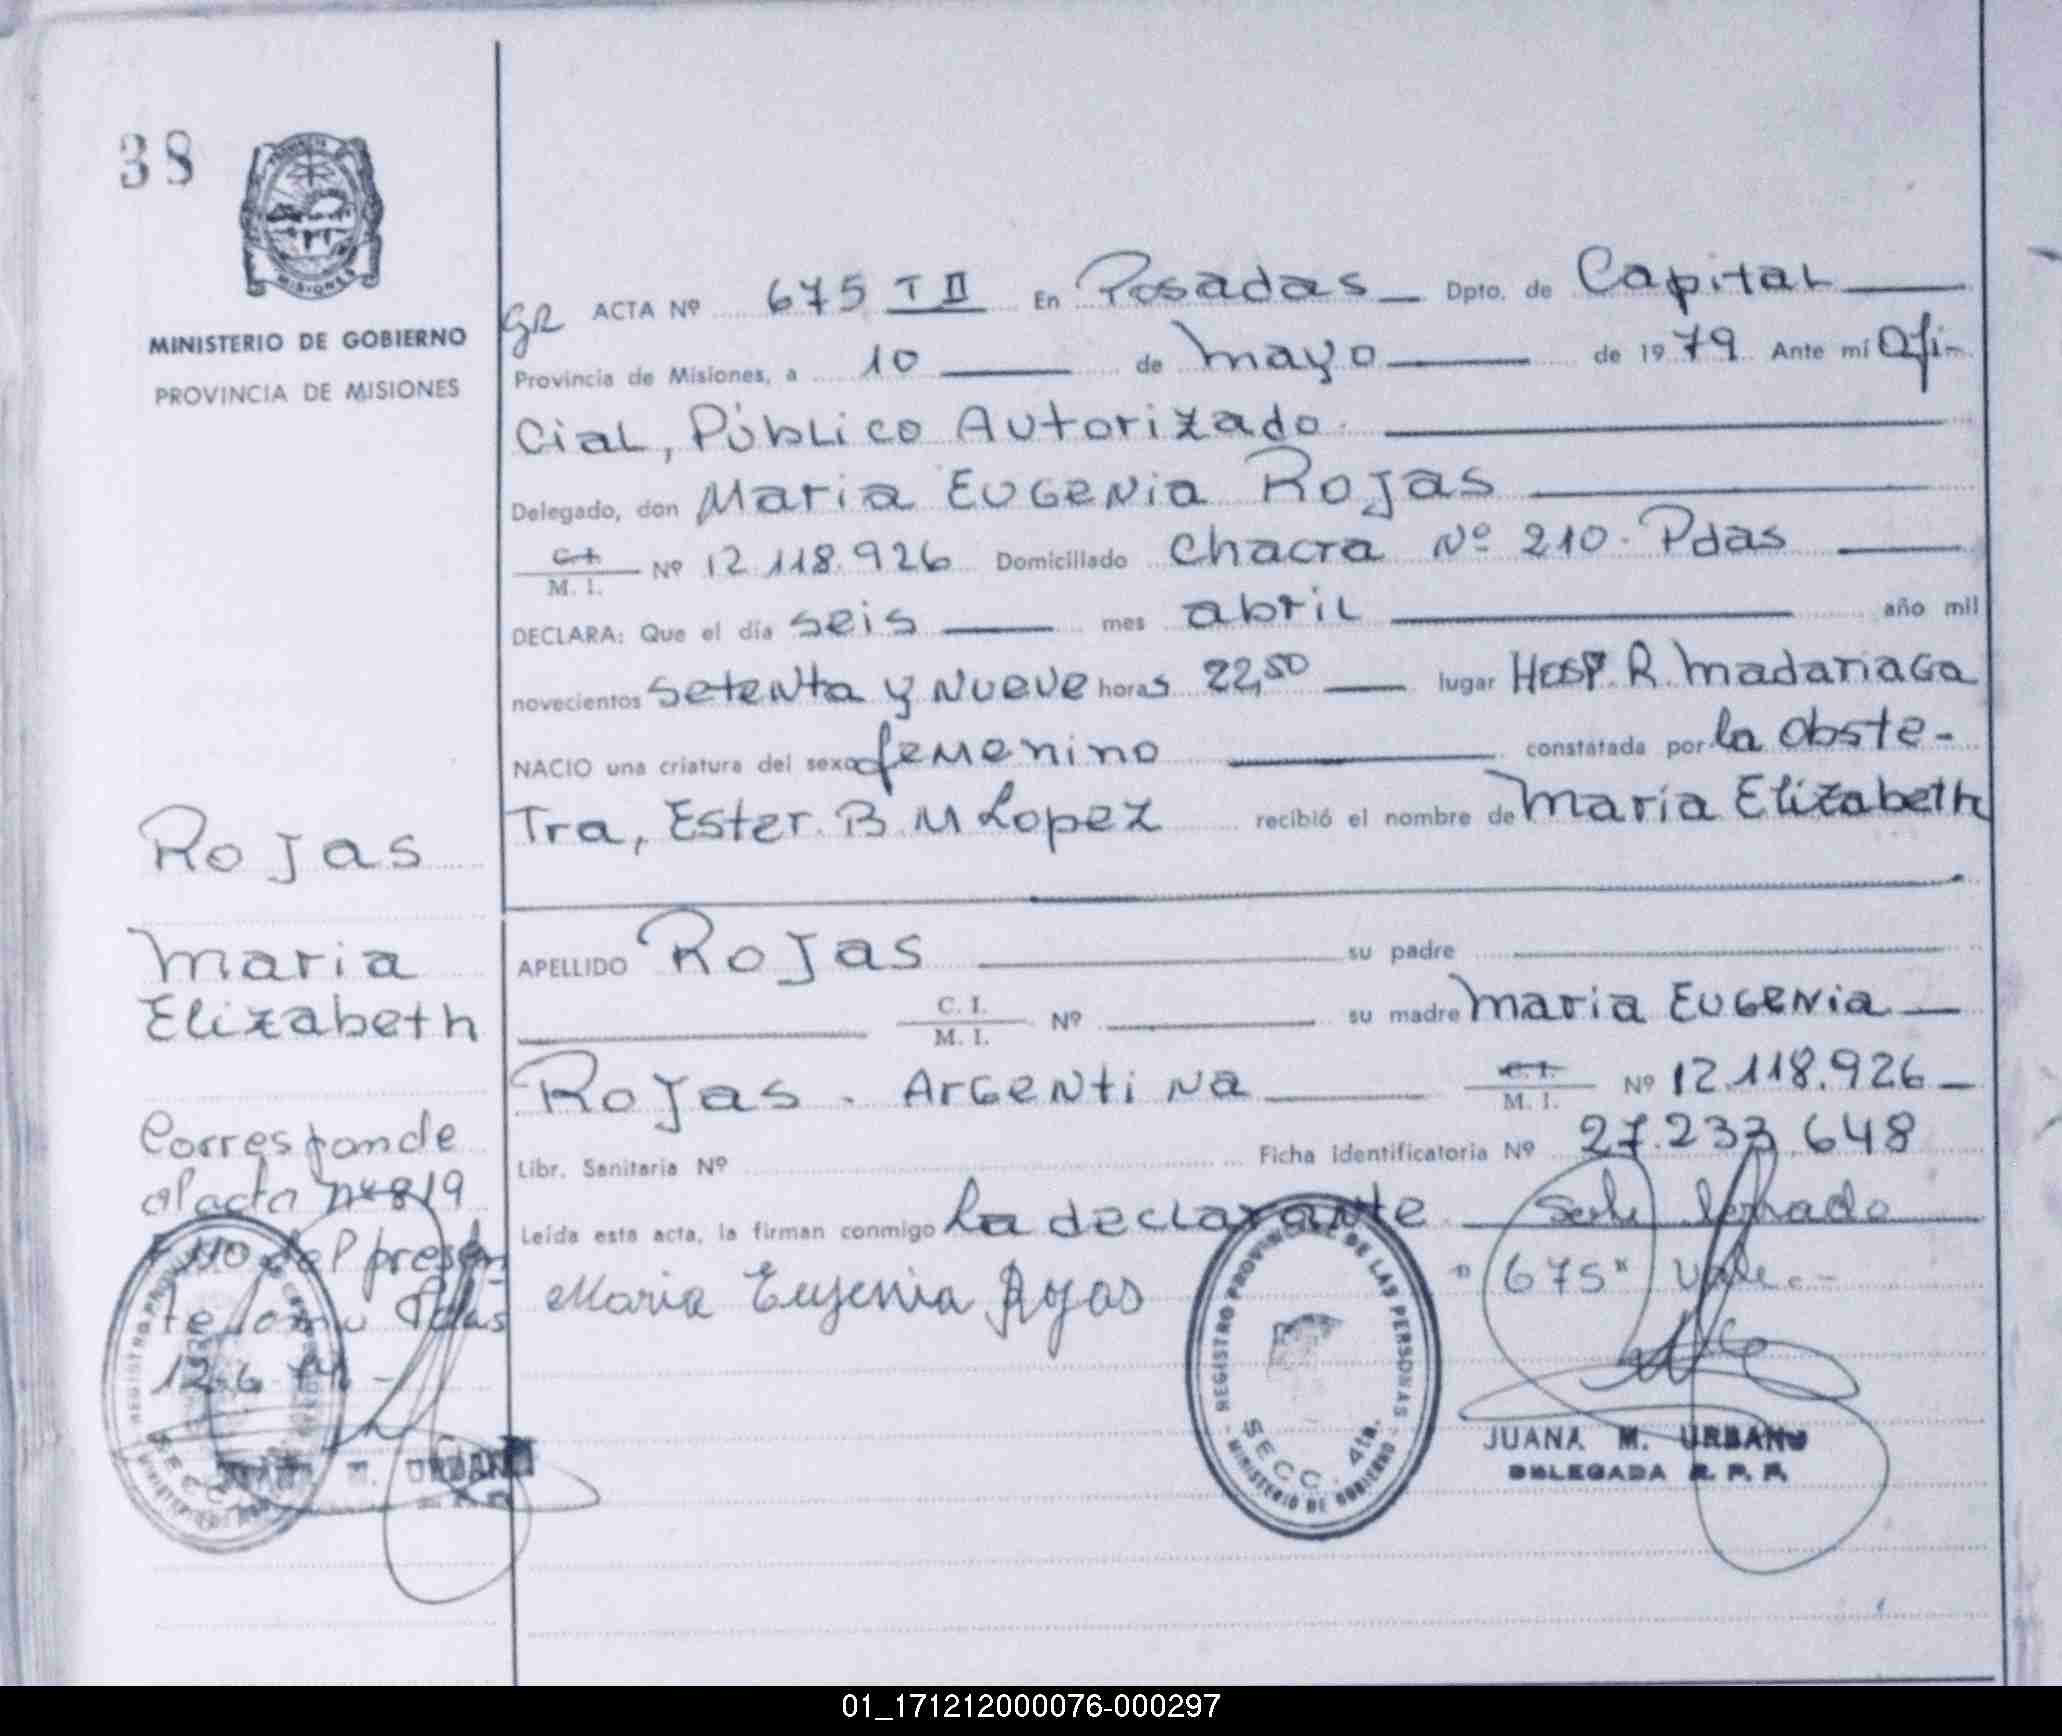 38
MINISTERIO DE GOBIERNO
PROVINCIA DE MISIONES
GR ACTA Nº 675 T II En Posadas Dpto. de Capital
Provincia de Misiones, a 10 de mayo de 1979 Ante mí Ofi-
cial, Público Autorizado.
Delegado, don Maria Eugenia Rojas
C.I. M. I. Nº 12.118.926 Domiciliado Chacra Nº 210. Pdas
DECLARA: Que el día seis mes abril año mil
novecientos setenta y nueve horas 22,50 lugar Hosp. R. Madariaga
NACIO una criatura del sexo femenino constatada por la obste-
tra, Ester. B. M Lopez recibió el nombre de Maria Elizabeth
Rojas
Maria
Elizabeth
APELLIDO Rojas su padre
C. I. M. I. Nº su madre Maria Eugenia
Rojas. Argentina C. I. M. I. Nº 12.118.926
Libr. Sanitaria Nº Ficha Identificatoria Nº 27.233.648
Leída esta acta, la firman conmigo la declarante
"675" Vale.-
Maria Eugenia Rojas
Corresponde
al acta nº 819
del presen
te tomo Pdas
12.6
REGISTRO PROVINCIAL DE LAS PERSONAS
SECC. 4ta.
MINISTERIO DE GOBIERNO
JUANA M. URBANO
DELEGADA R. P. P.
M. URBANO
01_171212000076-000297